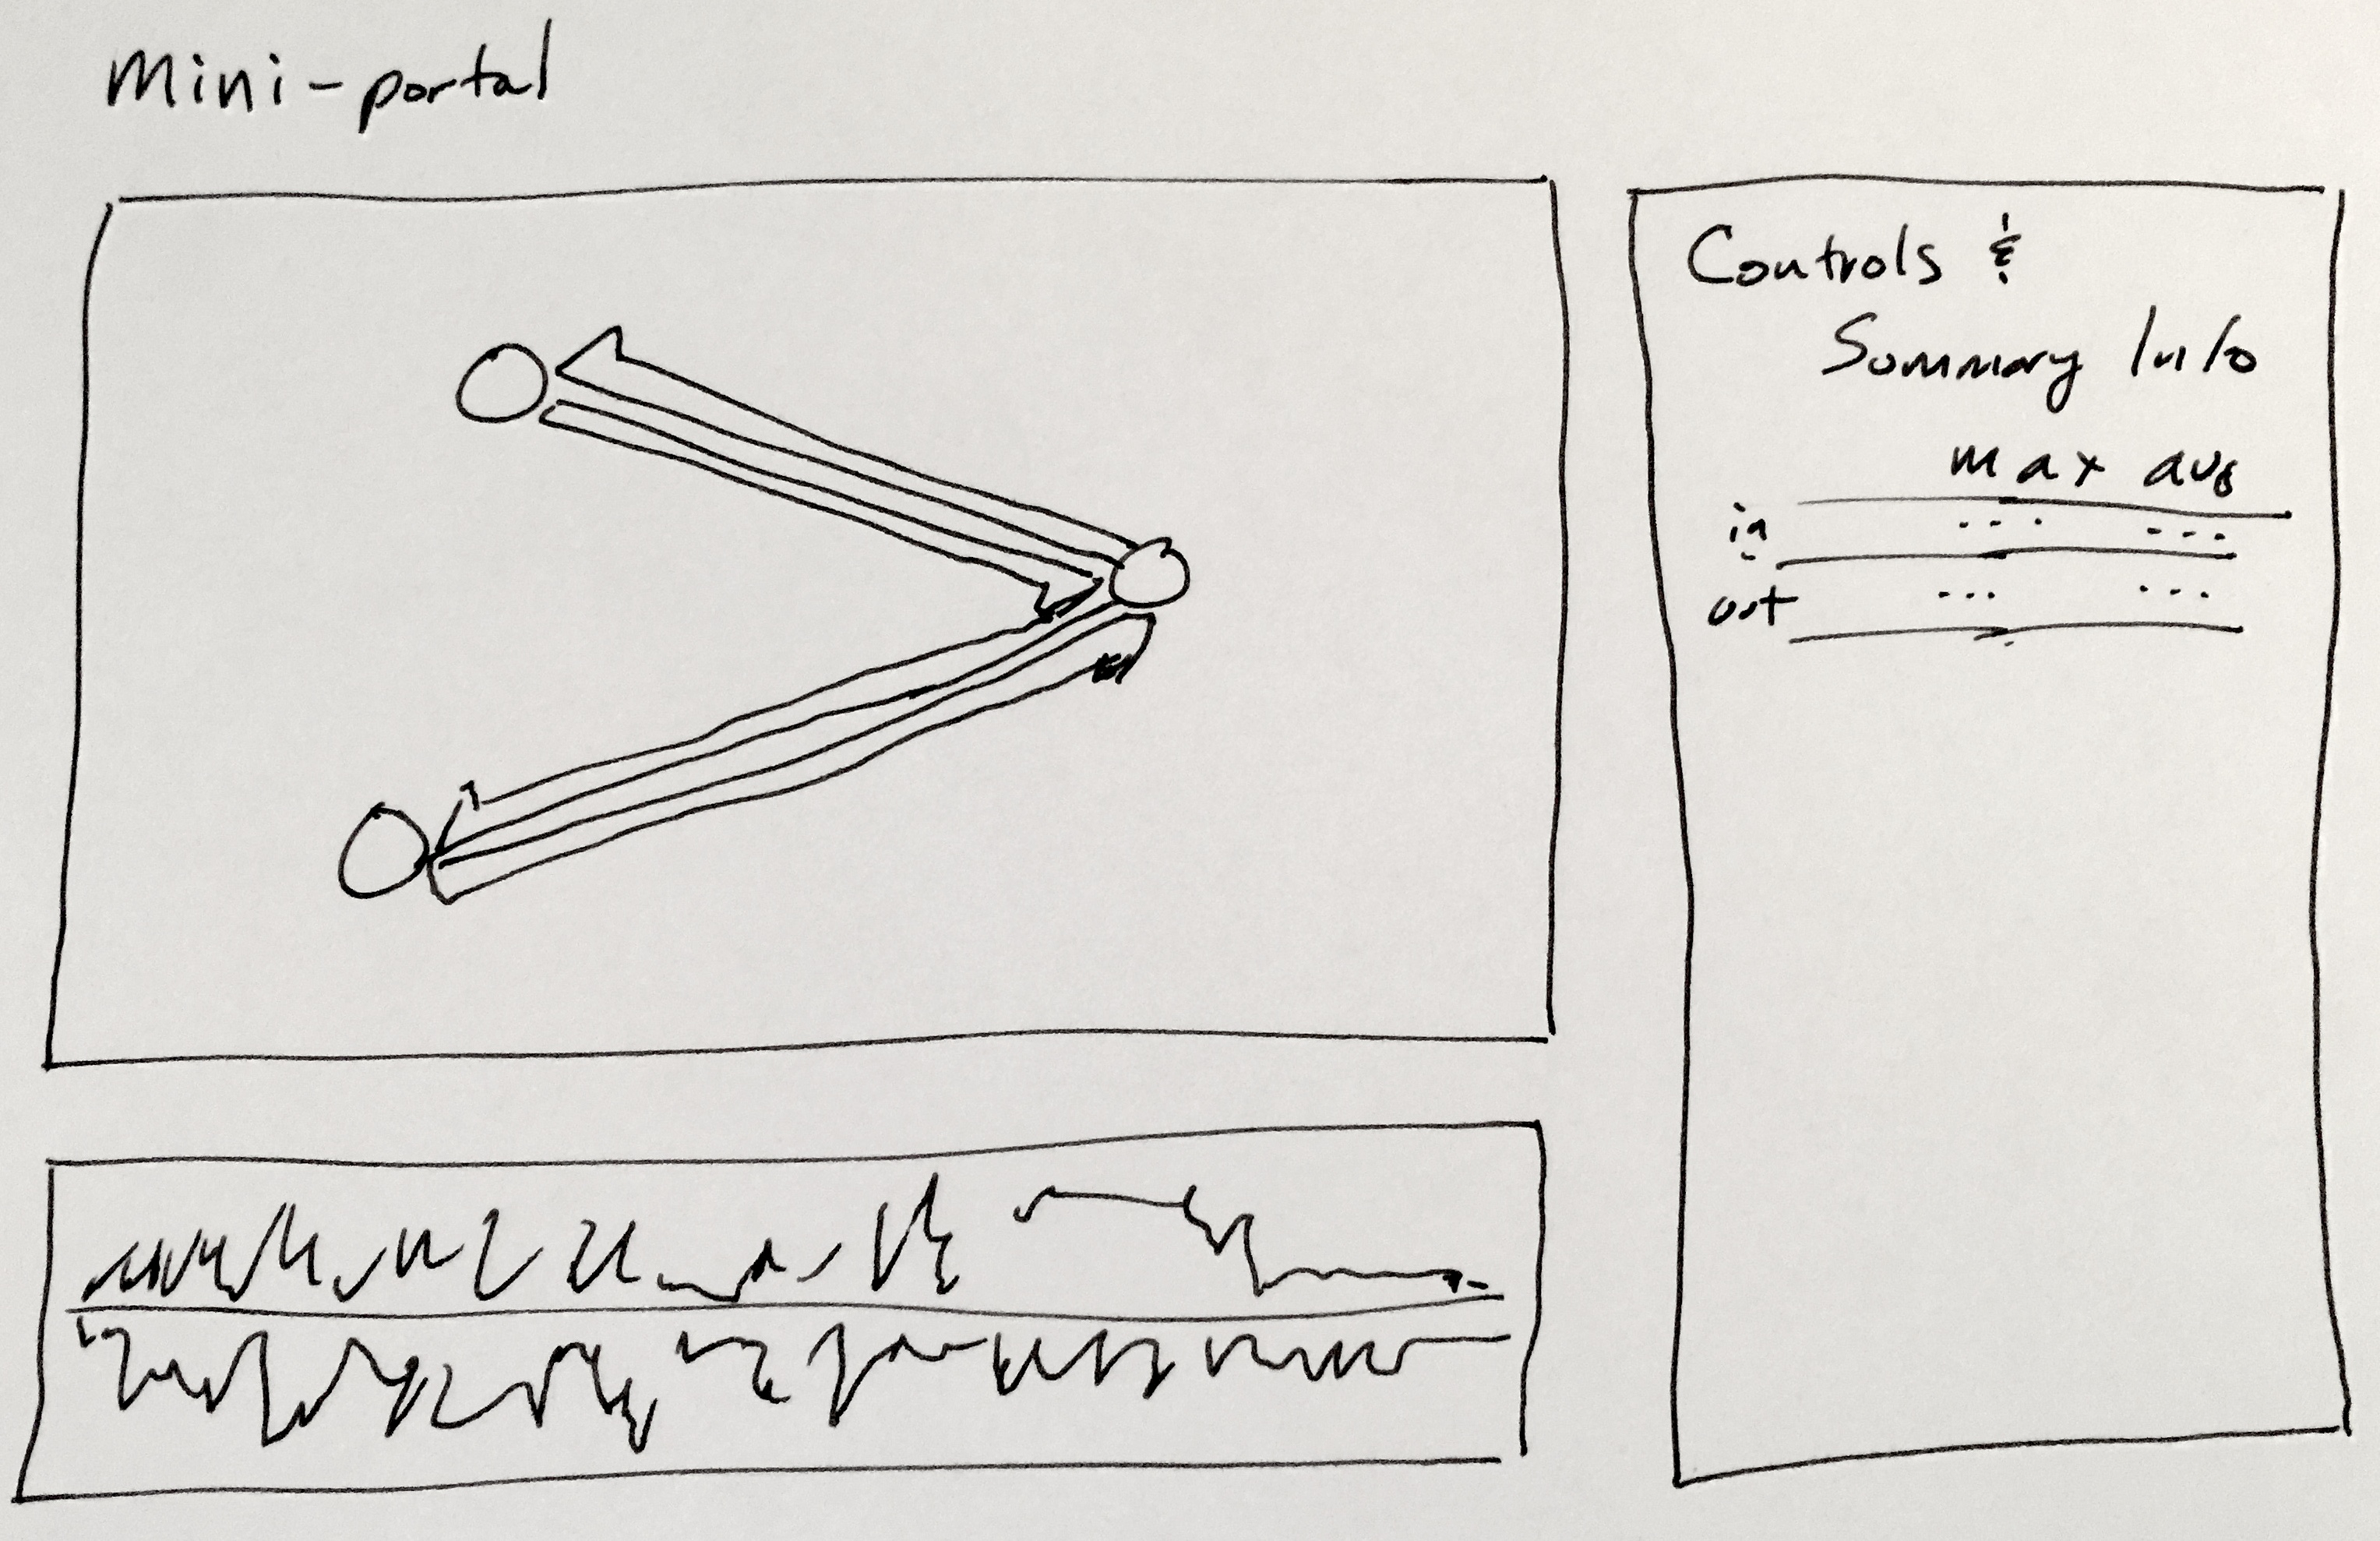 mini-portal
Controls &
Summary Info
max avg
in ... ...
out ... ...